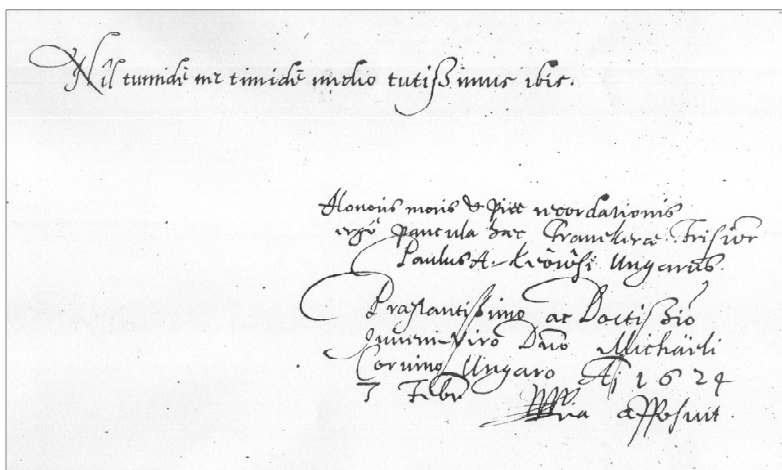 Nil tumidè nec timidè medio tutissimus ibis.
Honoris moris & piæ recordationis
ergò paucula hæc Franekeræ Frisior̄
Paulus A. Keörösi Ungarus.
Præstantissimo ac Doctissi͠o
Juveni-Viro Dn̄o Michäeli
Corvino Ungaro Aō 1624
7 Febr
apposuit.